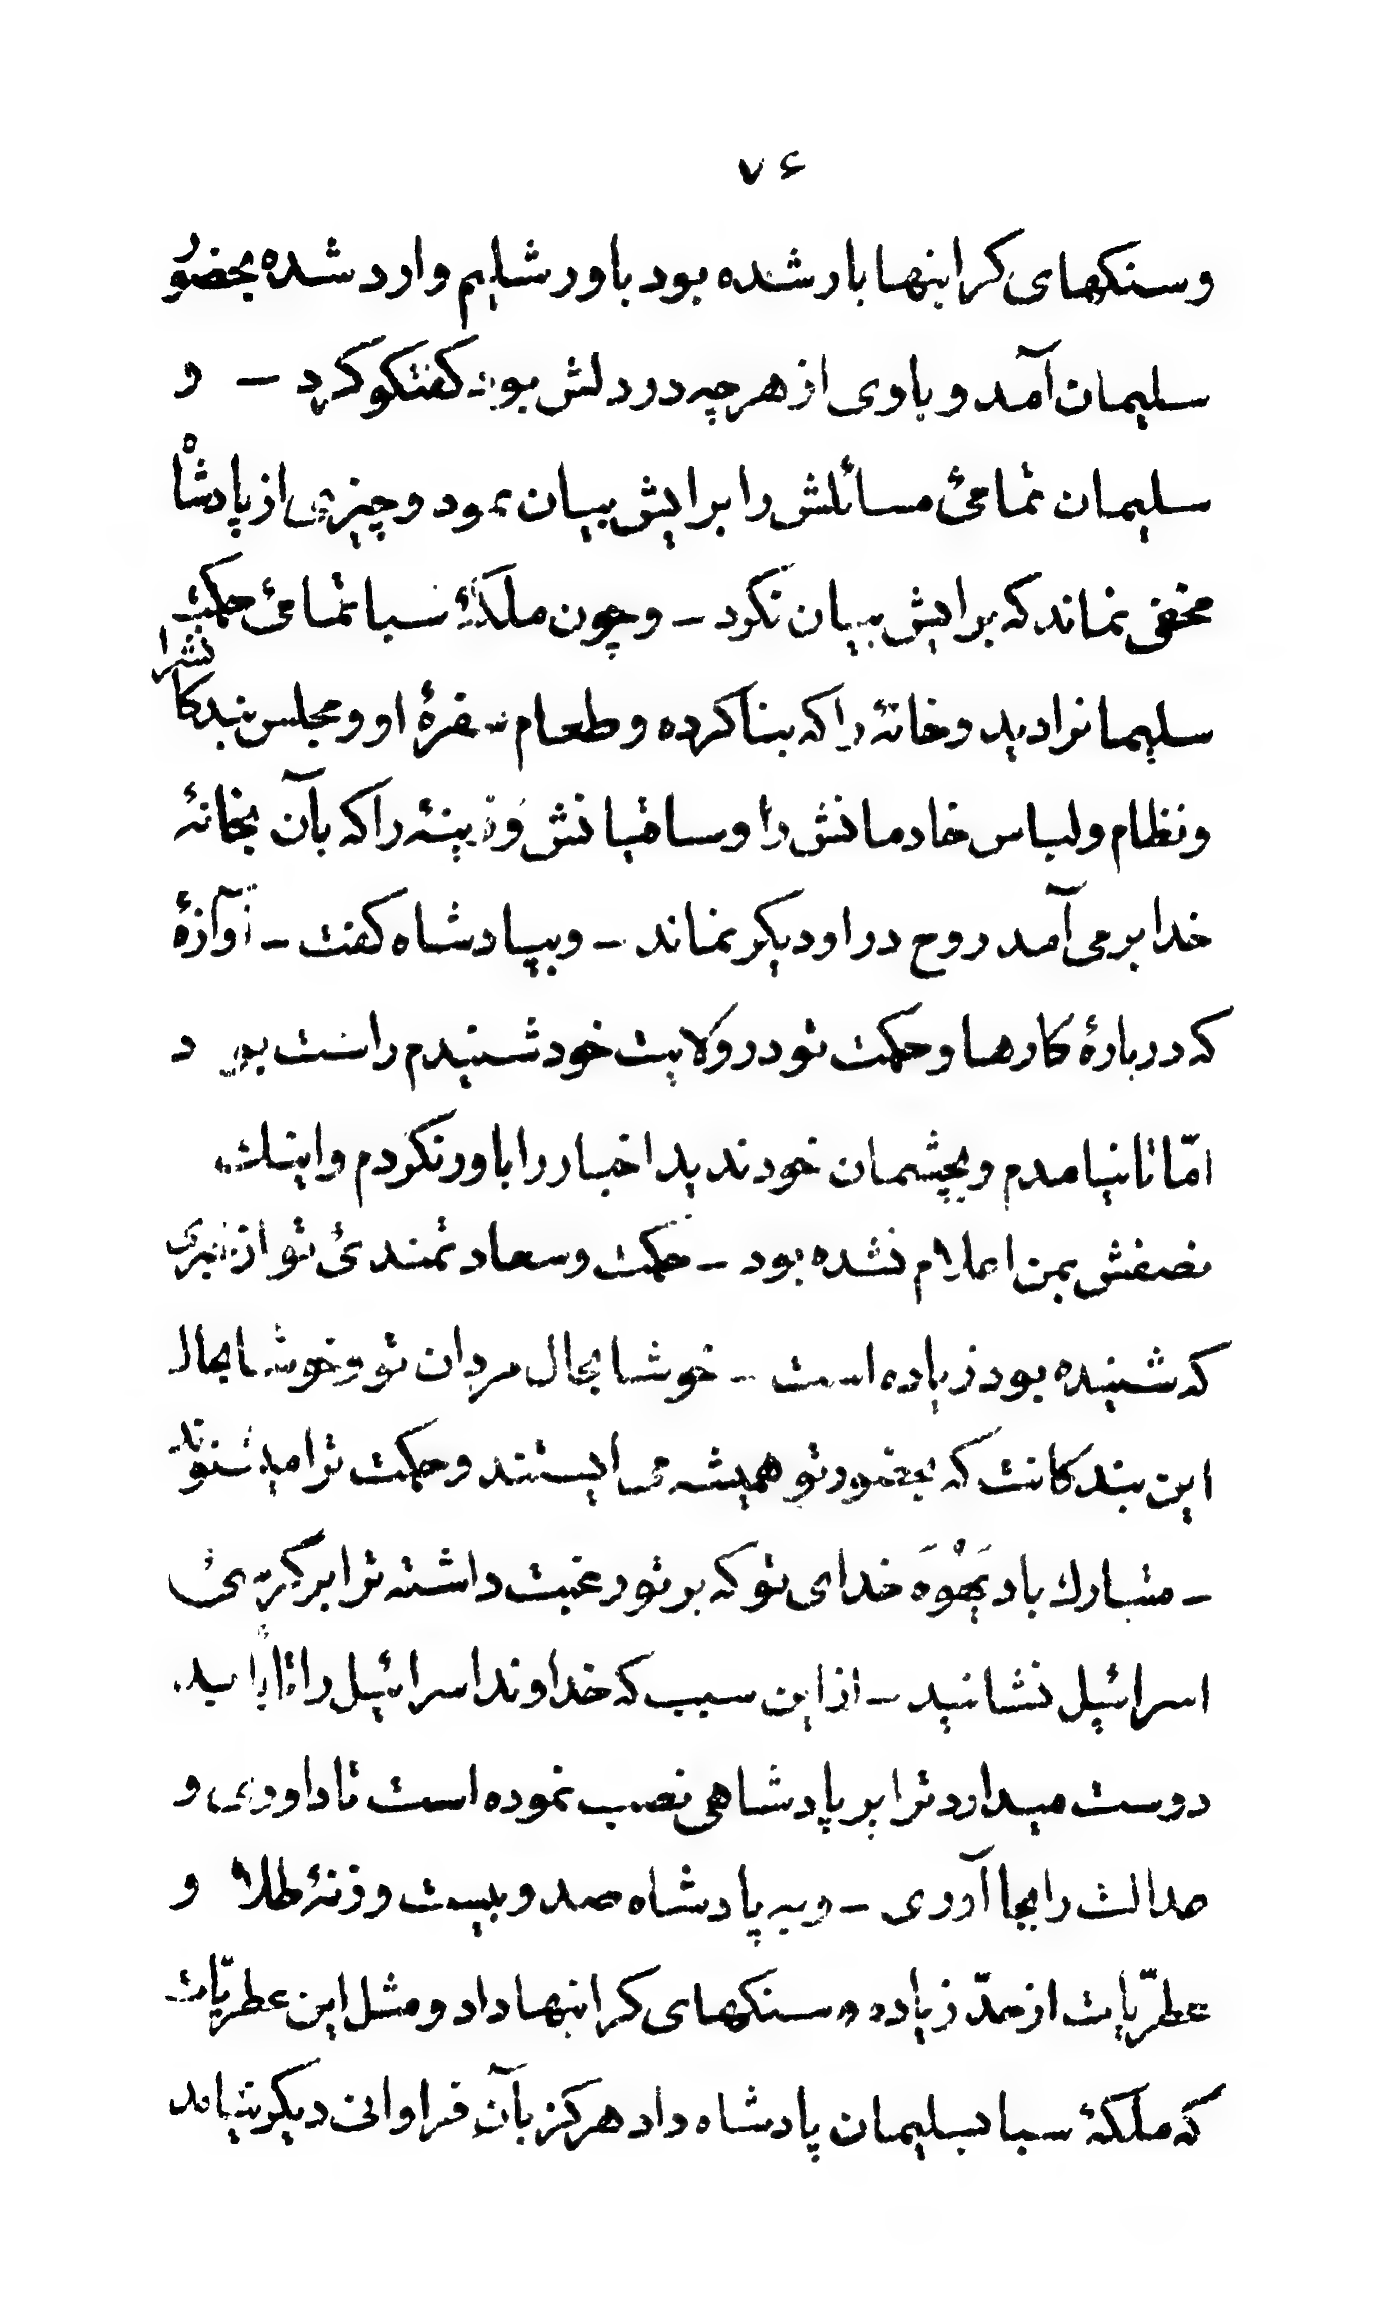 ۷۶
وسنکهای کرانبها بار شده بود باورشلیم وارد شده بحضور
سلیمان آمد و باوی از هرچه در دلش بود کفتکو کرد – و
سلیمان تمامئ مسائلش را برایش بیان نمود و چیزی از پادشاه
مخفی نماند که برایش بیان نکرد – و چون ملکهٔ سبا تمامئ حکمت
سلیمانرا دید وخانهٔ را که بنا کرده و طعام سفرهٔ او و مجلس بندکانشرا
ونظام ولباس خادمانش را وساقیانش وزینهٔ را که بآن بخانهٔ
خدا برمی آمد روح در او دیکر نماند – وبپادشاه کفت – آوازهٔ
که دربارهٔ کارها وحکمت تو در ولایت خود شنیدم راست بود
امّا تا نیامدم وبچشمان خود ندیدم اخبار را باور نکردم واینك
نصفش بمن اعلام نشده بود – حکمت وسعادتمندئ تو از خبری
که شنیده بودم زیاده است – خوشا بحال مردان تو وخوشا بحال
این بندکانت که بحضور تو همیشه می ایستند وحکمت ترا میشنوند
– متبارك باد یَهْوَه خدای تو که بر تو رغبت داشته ترا بر کرسئ
اسرائیل نشانید – از این سبب که خداوند اسرائیل را تا بأبد
دوست میدارد ترا بر پادشاهی نصب نموده است تا داوری و
عدالت را بجا آوری – وبه پادشاه صد و بیست وزنهٔ طلا و
عطریّات از حدّ زیاده و سنکهای کرانبها داد و مثل این عطریّات
که ملکهٔ سبا بسلیمان پادشاه داد هرکز بآن فراوانی دیکر نیامد